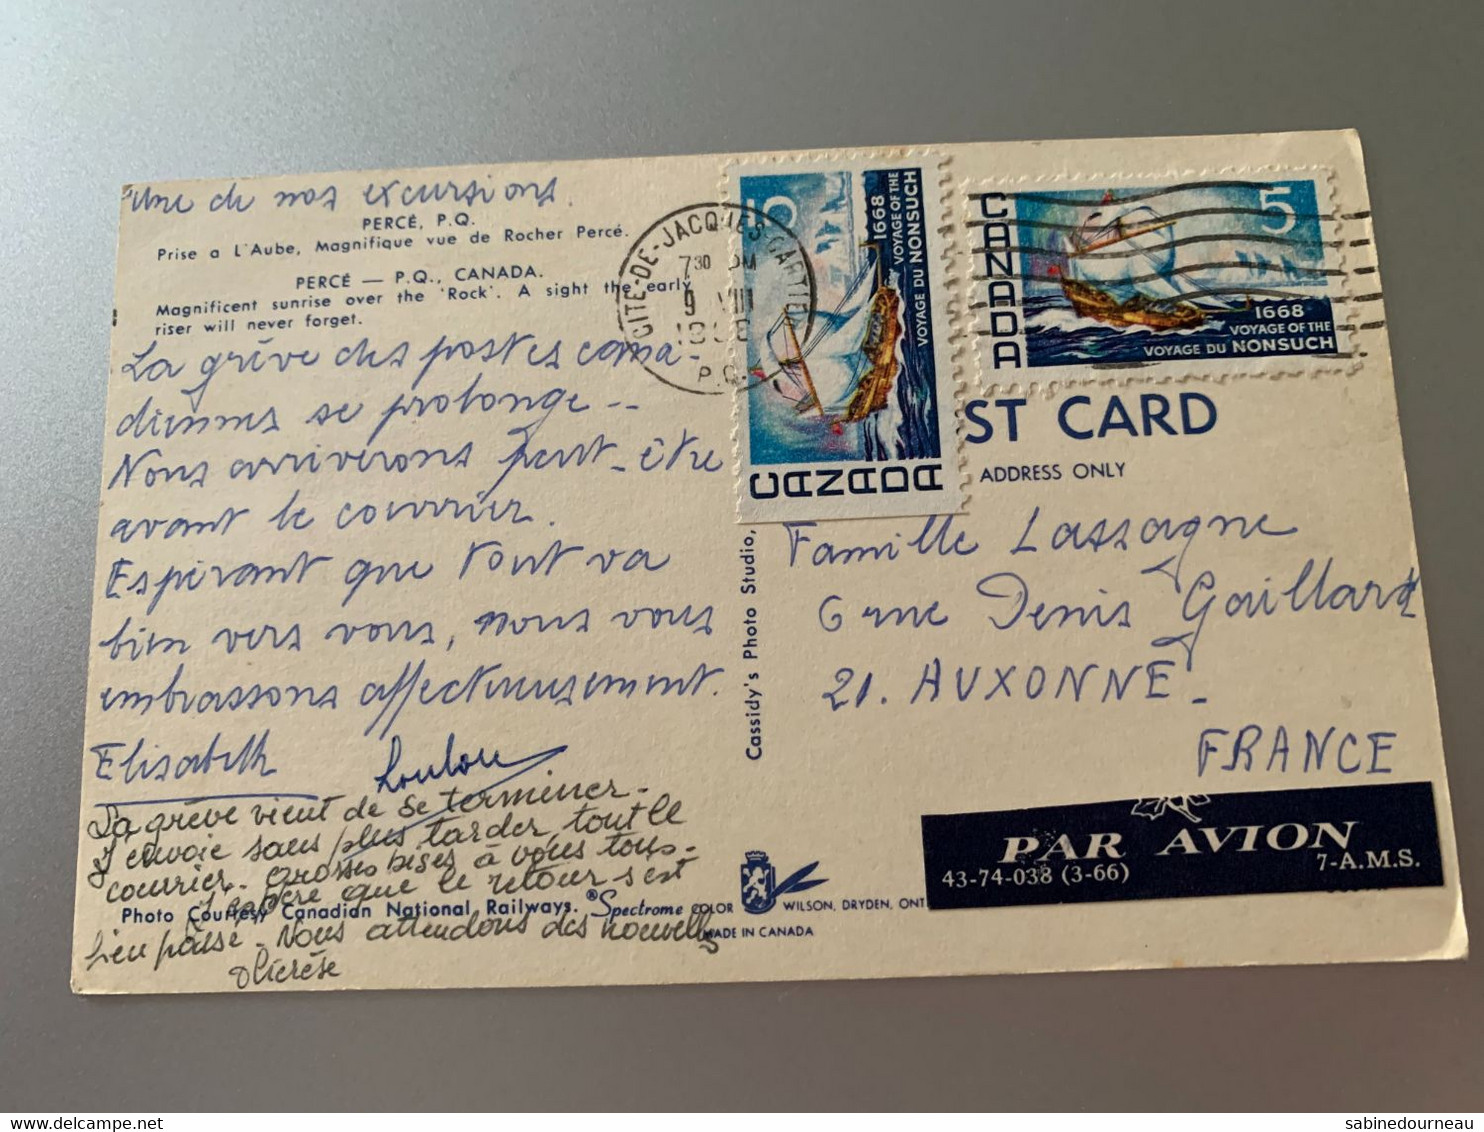 Une de nos excursions.
PERCÉ, P.Q.
Prise a L'Aube, Magnifique vue de Rocher Percé.
PERCÉ — P.Q., CANADA.
Magnificent sunrise over the 'Rock'. A sight the early
riser will never forget.
La grève des postes cana-
diennes se prolonge --
Nous arriverons peut-être
avant le courrier.
Espérant que tout va
bien vers vous, nous vous
embrassons affectueusement.
Elisabeth Loulou
La grève vient de se terminer.
J'envoie sans plus tarder tout le
courrier. Grosses bises à vous tous.
J'espère que le retour s'est
Photo Courtesy Canadian National Railways. ®Spectrome COLOR WILSON, DRYDEN, ONT
bien passé. Nous attendons des nouvelles
MADE IN CANADA
Thérèse
CITE-DE-JACQUES-CARTIER
7 30 PM
9 VIII
P.Q.
5
1668
VOYAGE OF THE
VOYAGE DU NONSUCH
CANADA
5
1668
VOYAGE OF THE
VOYAGE DU NONSUCH
CANADA
ST CARD
ADDRESS ONLY
Cassidy's Photo Studio,
Famille Lassagne
6 rue Denis Gaillard
21. AUXONNE -
FRANCE
PAR AVION
43-74-038 (3-66) 7-A.M.S.
delcampe.net
sabinedourneau